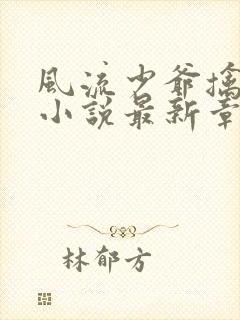 風流少爺擒
小說最新章
林郁方